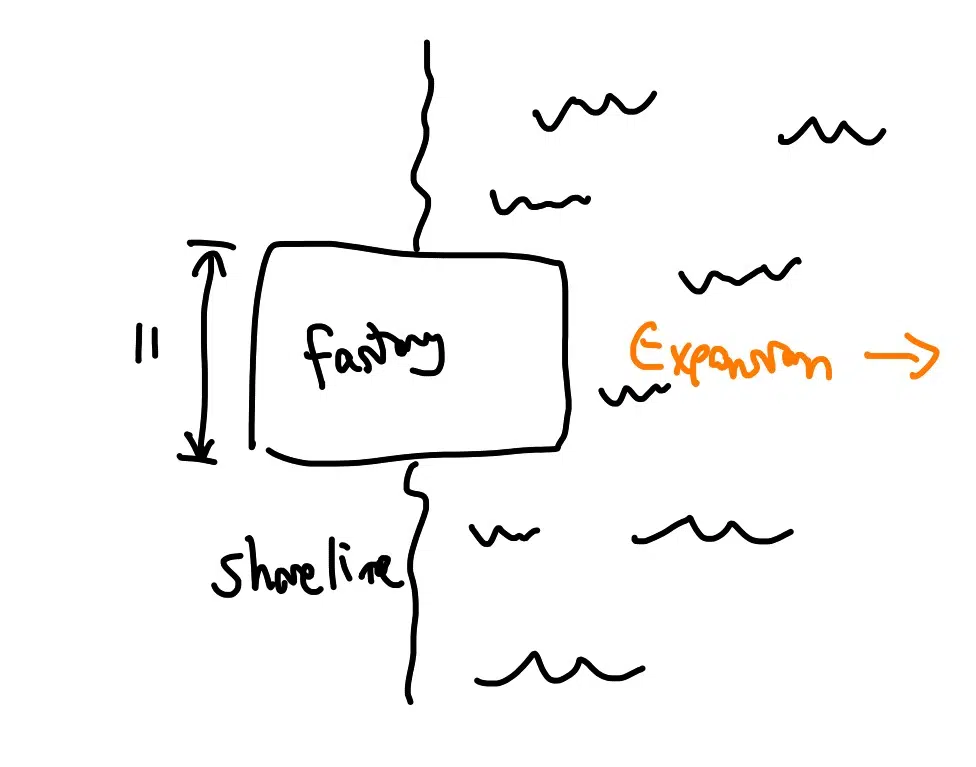 11
factory
Expansion →
shoreline